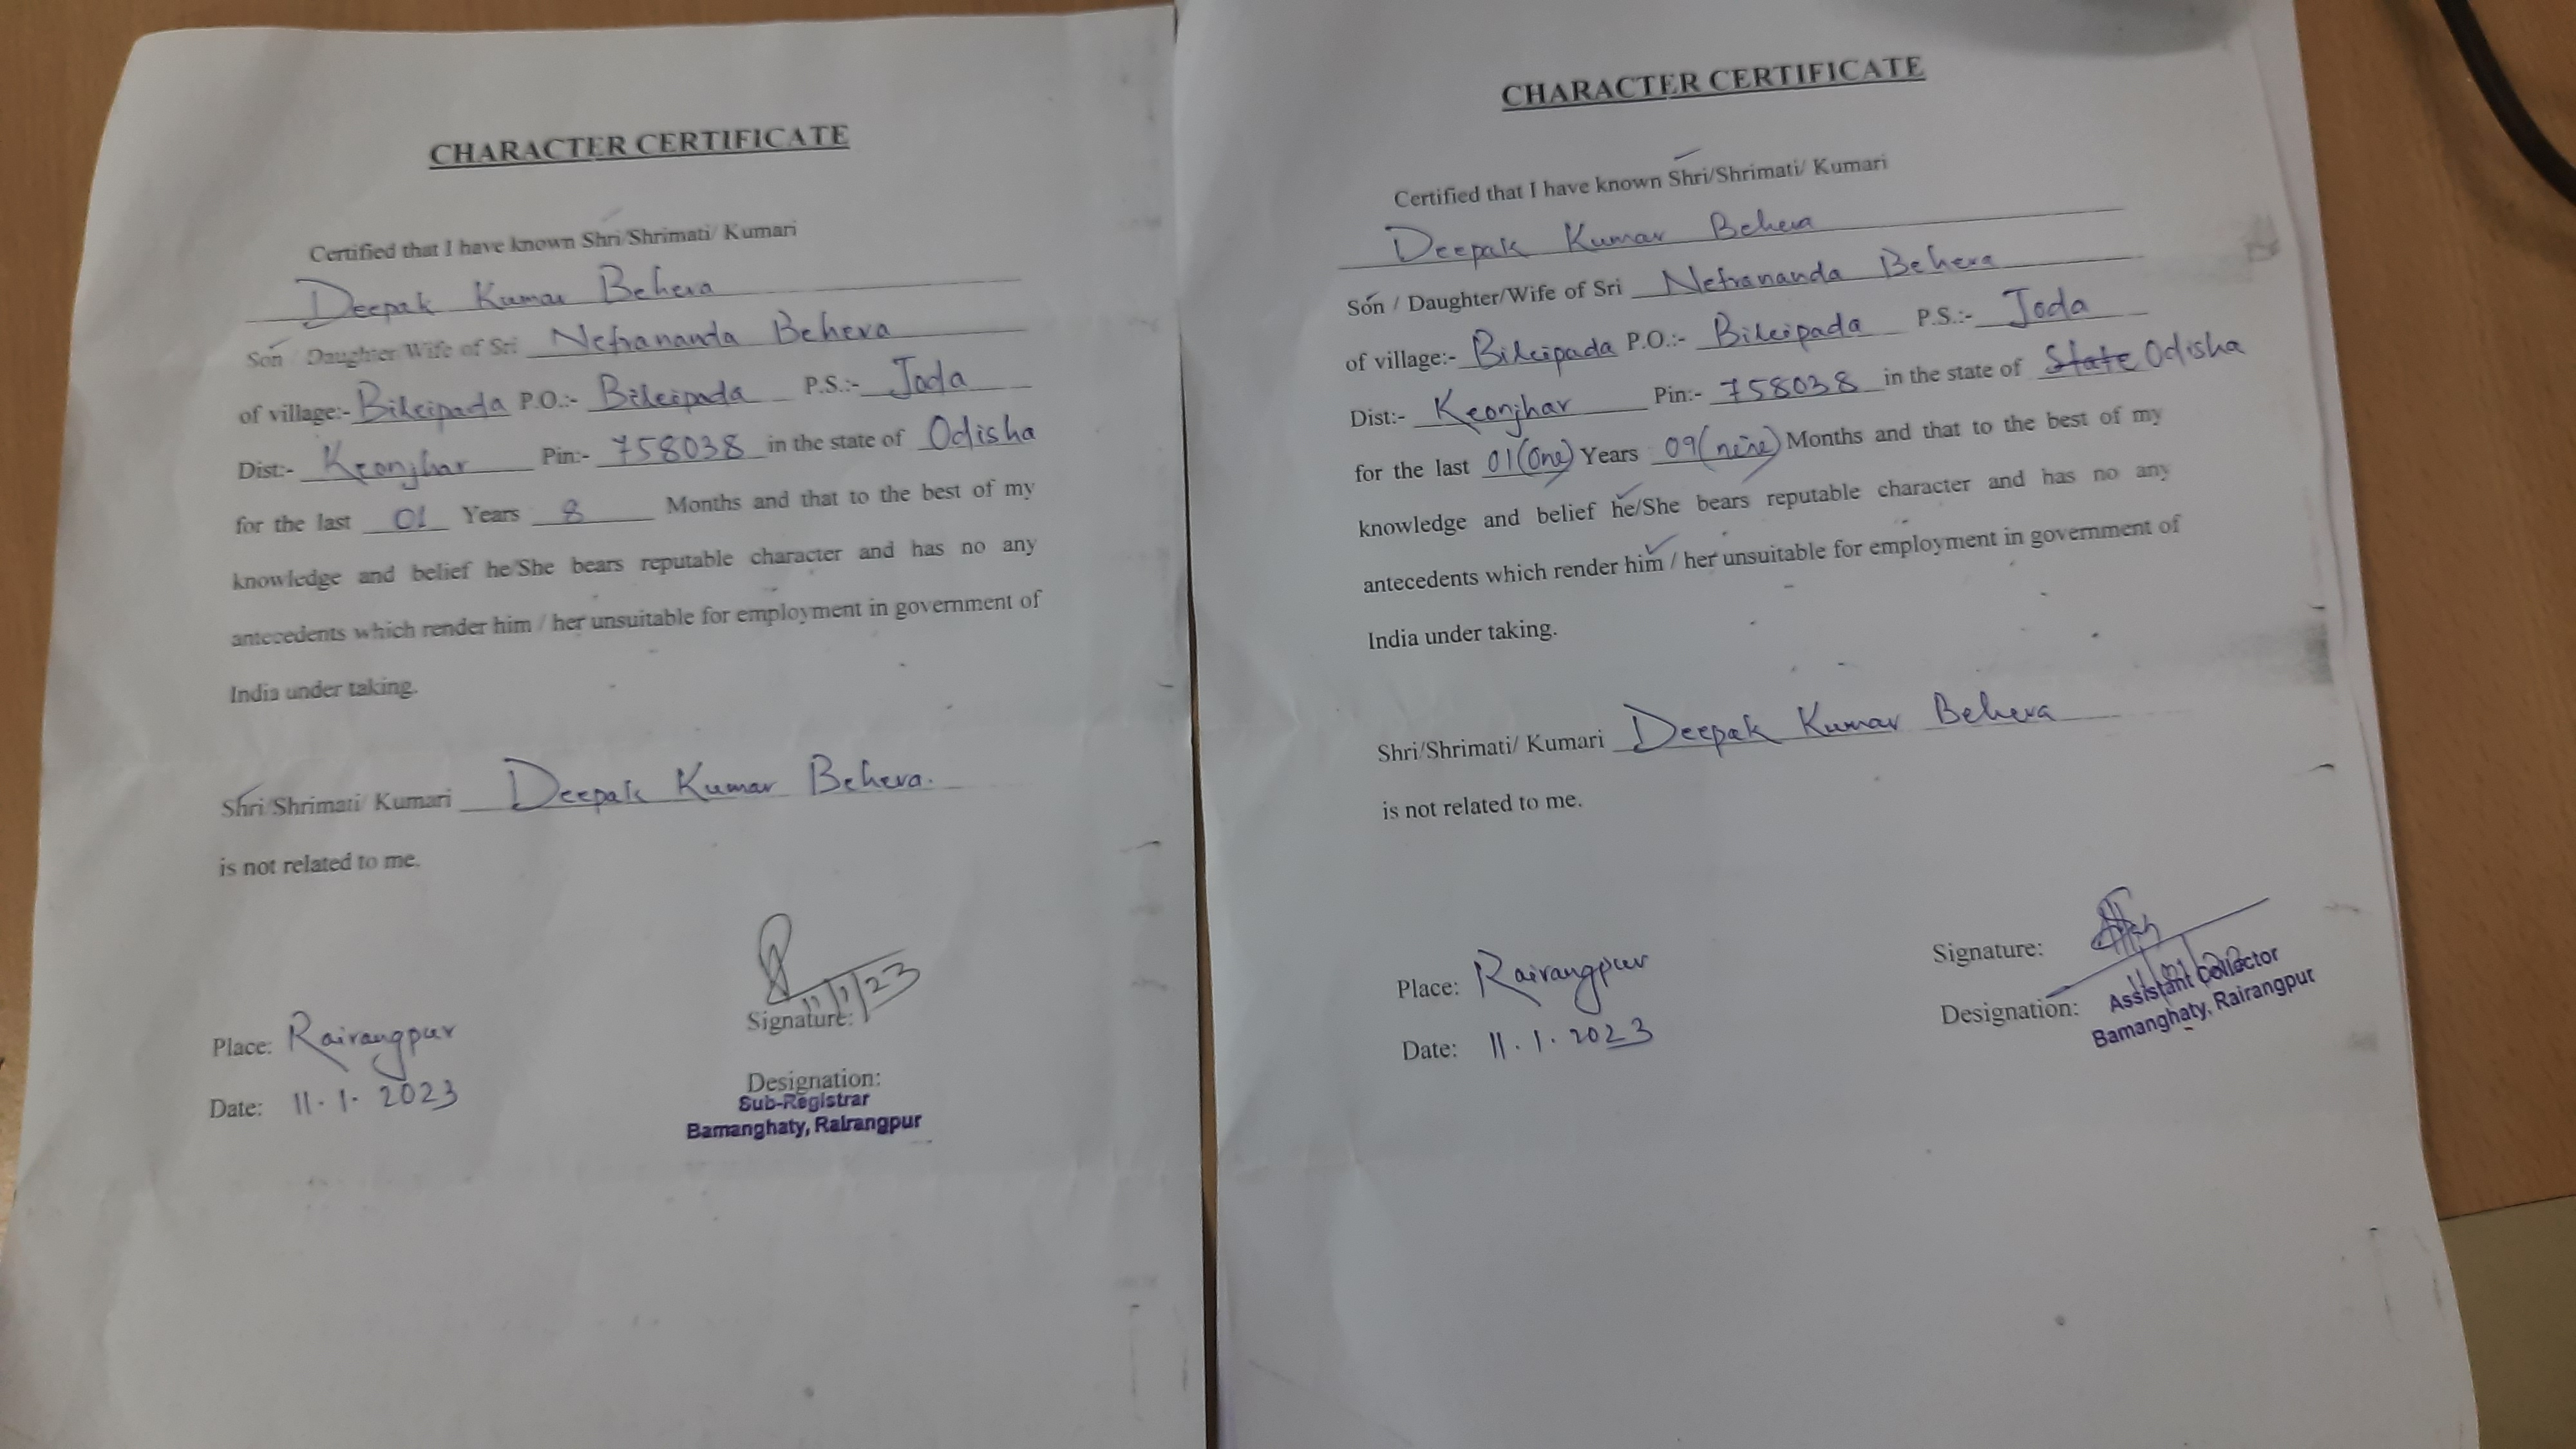 CHARACTER CERTIFICATE
Certified that I have known Shri/Shrimati/ Kumari
Deepak Kumar Behera
Son / Daughter/Wife of Sri Netrananda Behera
of village:- Bileipada P.O.:- Bileipada P.S.:- Joda
Dist:- Keonjhar Pin:- 758038 in the state of Odisha
for the last 01 Years 8 Months and that to the best of my
knowledge and belief he/She bears reputable character and has no any
antecedents which render him / her unsuitable for employment in government of
India under taking.
Shri/Shrimati/ Kumari Deepak Kumar Behera.
is not related to me.
Place: Rairangpur
Date: 11.1.2023
Signature: 11/1/23
Designation:
Sub-Registrar
Bamanghaty, Rairangpur
CHARACTER CERTIFICATE
Certified that I have known Shri/Shrimati/ Kumari
Deepak Kumar Behera
Son / Daughter/Wife of Sri Netrananda Behera
of village:- Bileipada P.O.:- Bileipada P.S.:- Joda
Dist:- Keonjhar Pin:- 758038 in the state of State Odisha
for the last 01(One) Years 09(nine) Months and that to the best of my
knowledge and belief he/She bears reputable character and has no any
antecedents which render him / her unsuitable for employment in government of
India under taking.
Shri/Shrimati/ Kumari Deepak Kumar Behera
is not related to me.
Place: Rairangpur
Date: 11.1.2023
Signature:
Designation: Assistant Collector
Bamanghaty, Rairangpur